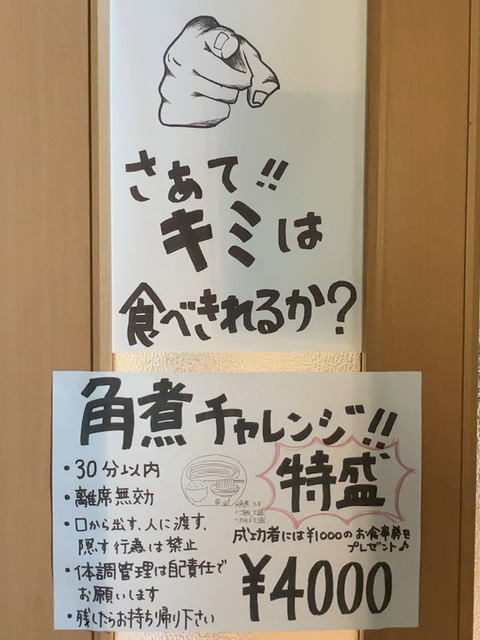 さあて!!
キミは
食べきれるか?
角煮チャレンジ!!
・30分以内
・離席無効
・口から出す、人に渡す、
隠す行為は禁止
・体調管理は自責任で
お願いします
・残したらお持ち帰り下さい
特盛
成功者には¥1000のお食事券を
プレゼント♪
¥4000